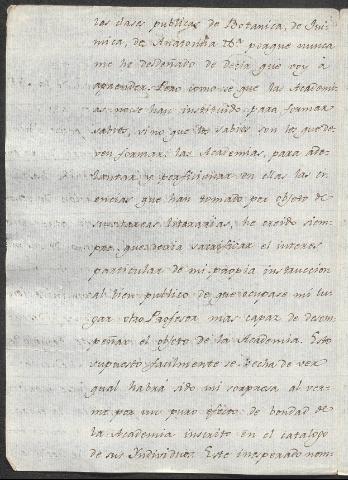 las clases publicas de Botanica, de Qui-
mica, de Anatomia &.ª porque nunca
me he desdeñado de decir que voy à
aprender. Pero como se que las Academi-
as no se han instituido para formar
sabios, sino que los sabios son los que de-
ven formar las Academias, para ade-
lantar, y perficionar en ellas las ci-
encias que han tomado por objeto de
sus tareas literarias, he creido siem-
pre, que devia sacrificar el interes
particular de mi propia instruccion
al bien publico de que ocupase mi lu-
gar otro Profesor mas capaz de desem-
peñar el objeto de la Academia. Esto
supuesto facilmente se dexa de ver
qual habrá sido mi sorpresa al ver-
me por un puro efecto de bondad de
la Academia inscrito en el catalogo
de sus Individuos. Este inesperado nom-